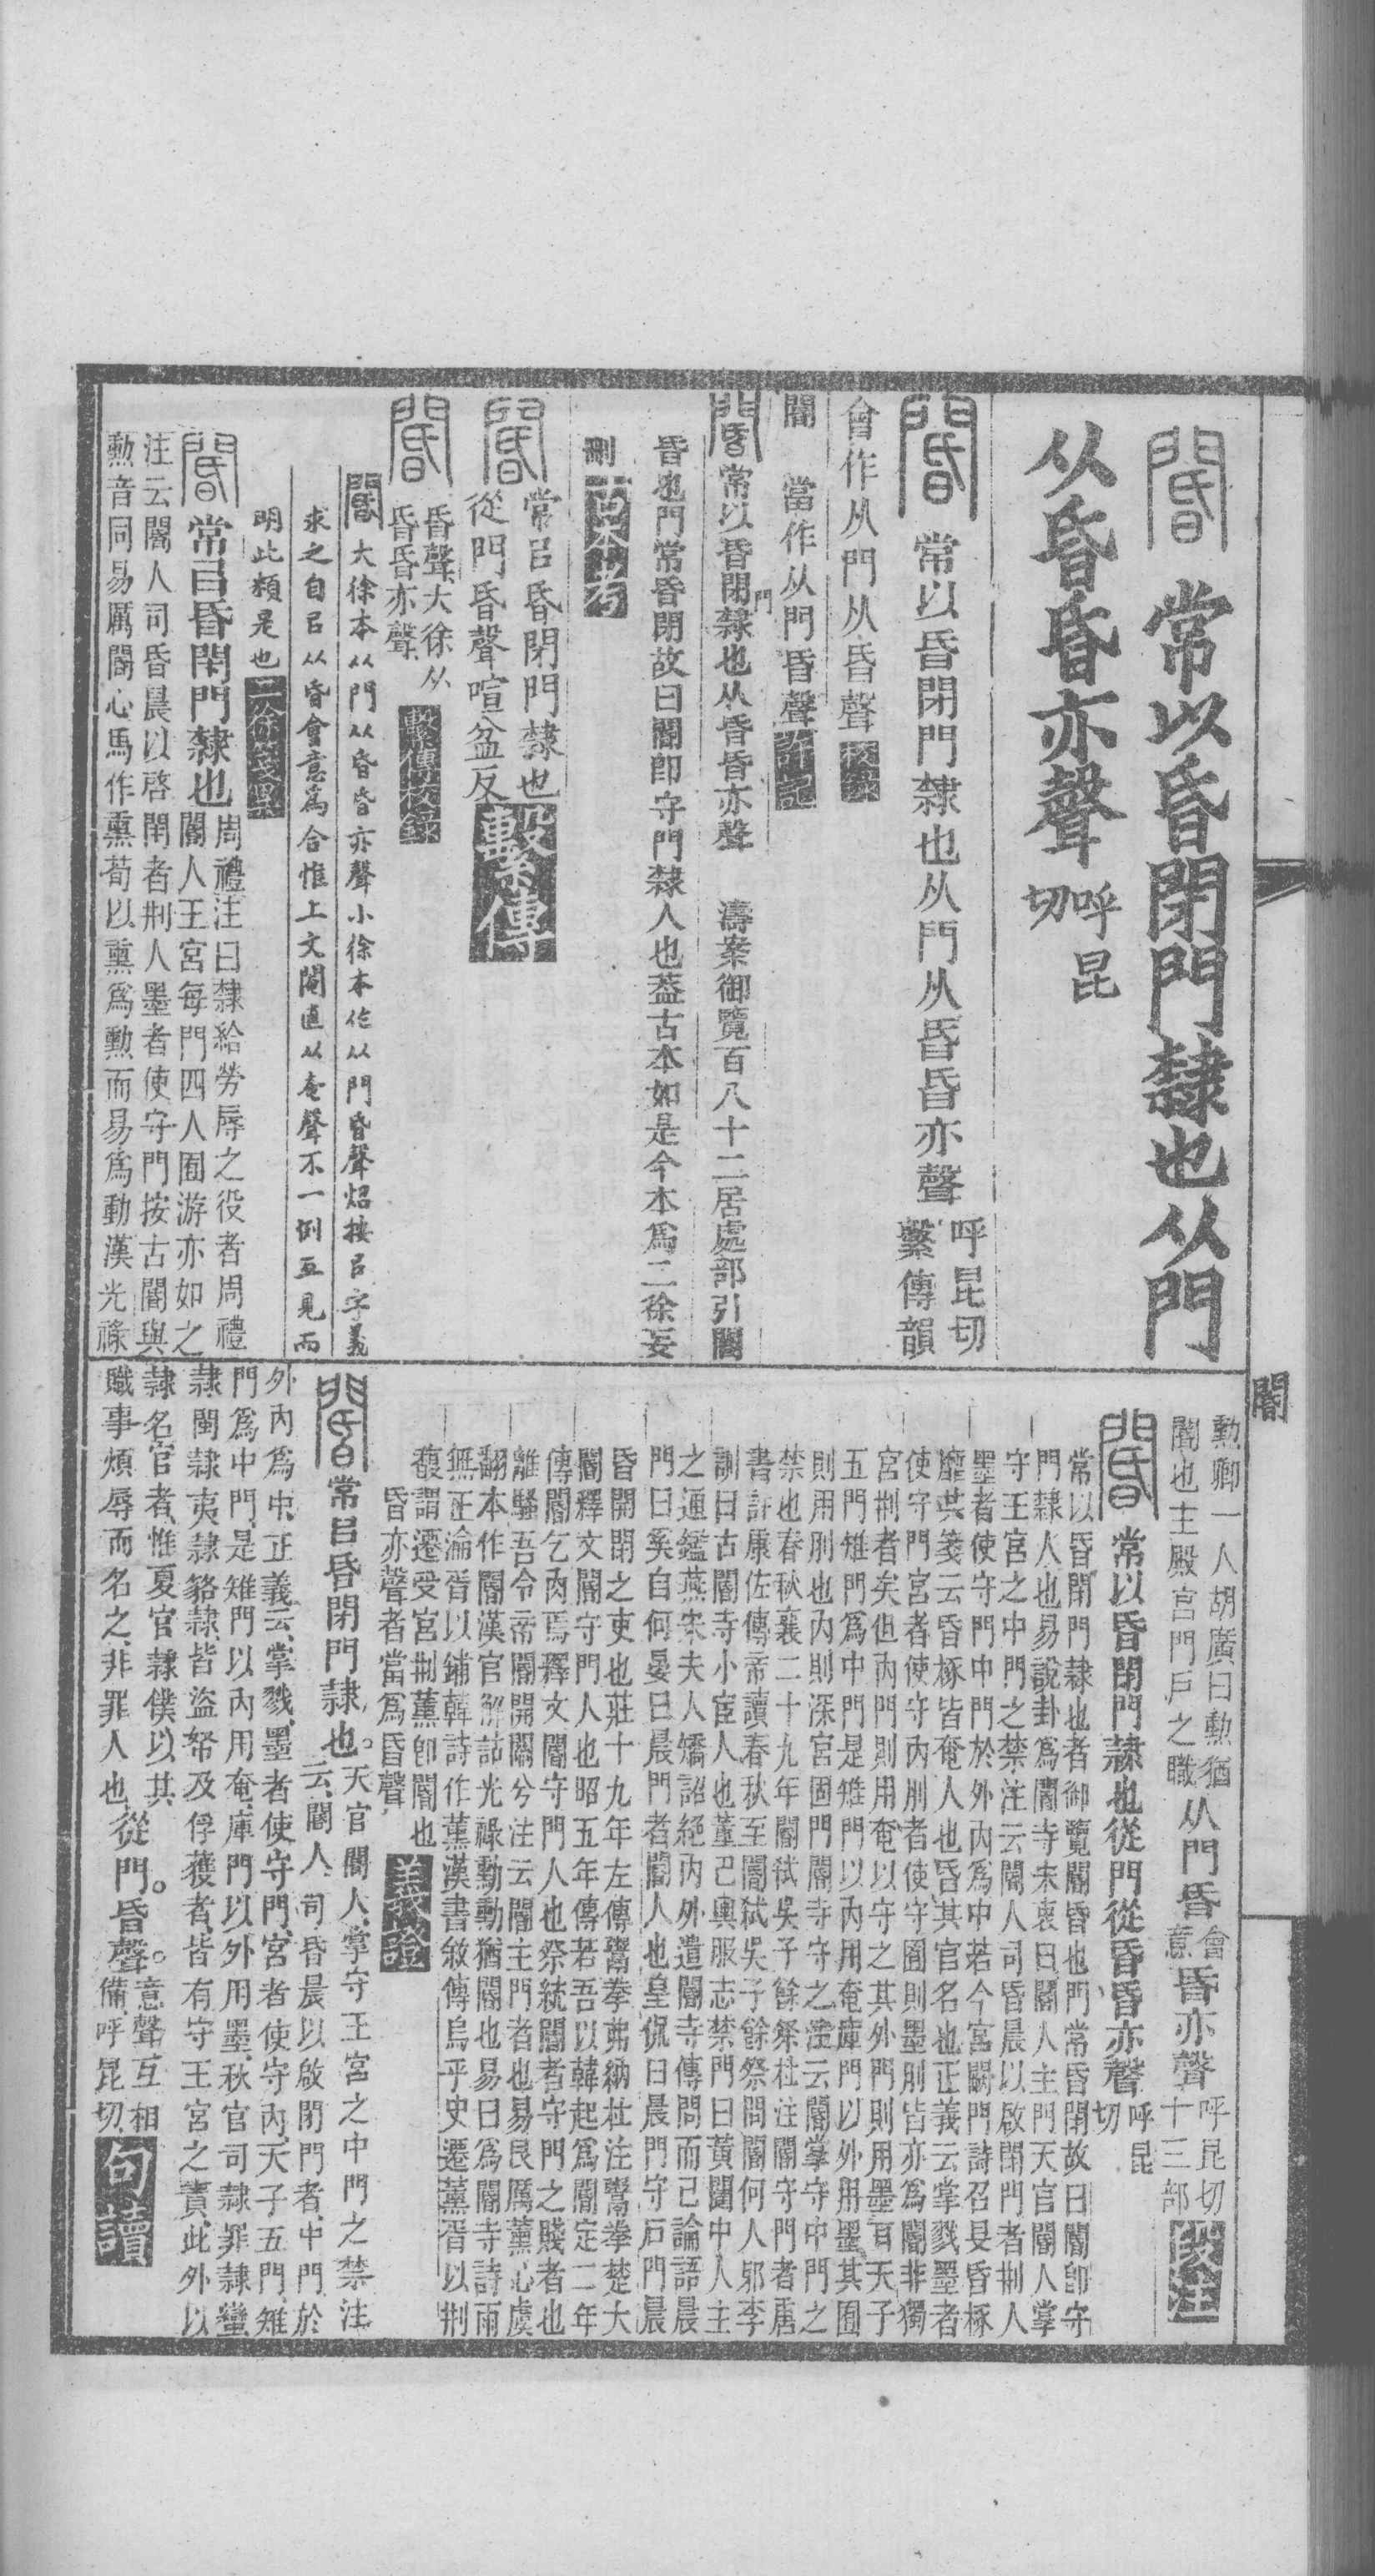 閽 常以昏閉門隸也从門
从昏昏亦聲 呼昆切
閽 常以昏閉門隸也从門从昏昏亦聲 呼昆切 繫傳韻
會作从門从昏聲 校錄
閽 當作从門昏聲 許記
閽 常以昏閉門隸也从昏昏亦聲 濤案御覽百八十二居處部引閽
昏也門常昏閉故曰閽即守門隸人也蓋古本如是今本爲二徐妄
刪 古本考
閽 常㠯昏閉門隸也
從門昏聲喧盆反 繫傳
閽 昏聲大徐从
昏昏亦聲 繫傳校錄
閽 大徐本从門从昏昏亦聲小徐本作从門昏聲炤按㠯字義
求之自㠯从昏會意爲合惟上文閹直从奄聲不一例互見而
明此類是也 二徐箋異
閽 常㠯昏閉門隸也 周禮注曰隸給勞辱之役者周禮
閽人王宮每門四人囿游亦如之
注云閽人司昏晨以啓閉者刑人墨者使守門按古閽與
勳音同易厲閽心馬作熏荀以熏爲勳而易爲動漢光祿
閽
勳卿一人胡廣曰勳猶
閽也主殿宮門戶之職 从門昏 會意 昏亦聲 呼昆切十三部 段注
閽 常以昏閉門隸也從門從昏昏亦聲 呼昆切
常以昏閉門隸也者御覽閽昏也門常昏閉故曰閽即守
門隸人也易說卦爲閽寺宋衷曰閽人主門天官閽人掌
守王宮之中門之禁注云閽人司昏晨以啟閉門者刑人
墨者使守門中門於外內爲中若今宮闕門詩召旻昏椓
靡共箋云昏椓皆奄人也昏其官名也正義云掌戮墨者
使守門宮者使守內刖者使守囿則墨刖皆亦爲閽非獨
宮刑者矣但內門則用奄以守之其外門則用墨耳天子
五門雉門爲中門是雉門以內用奄庫門以外用墨其囿
則用刖也內則深宮固門閽寺守之注云閽掌守中門之
禁也春秋襄二十九年閽弑吳子餘祭杜注閽守門者唐
書許康佐傳帝讀春秋至閽弑吳子餘祭問閽何人邪李
訓曰古閽寺小宦人也董巴輿服志禁門曰黃闥中人主
之通鑑燕宋夫人矯詔絕內外遣閽寺傳問而已論語晨
門曰奚自何晏曰晨門者閽人也皇侃曰晨門守石門晨
昏開閉之吏也莊十九年左傳鬻拳弗納杜注鬻拳楚大
閽釋文閽守門人也昭五年傳若吾以韓起爲閽定二年
傳閽乞肉焉釋文閽守門人也祭統閽者守門之賤者也
離騷吾令帝閽開關兮注云閽主門者也易艮厲薰心虞
翻本作閽漢官解詁光祿勳勳猶閽也易曰爲閽寺詩雨
無正淪胥以鋪韓詩作薰漢書敘傳烏乎史遷薰胥以刑
馥謂遷受宮刑薰即閽也
昏亦聲者當爲昏聲 義證
閽 常㠯昏閉門隸也。天官閽人掌守王宮之中門之禁注
云閽人司昏晨以啟閉門者中門於
外內爲中正義云掌戮墨者使守門宮者使守內天子五門雉
門爲中門是雉門以內用奄庫門以外用墨秋官司隸罪隸蠻
隸閩隸夷隸貉隸皆盜帑及俘獲者皆有守王宮之責此外以
隸名官者惟夏官隸僕以其
職事煩辱而名之非罪人也 從門。昏聲。意聲互相備呼昆切 句讀